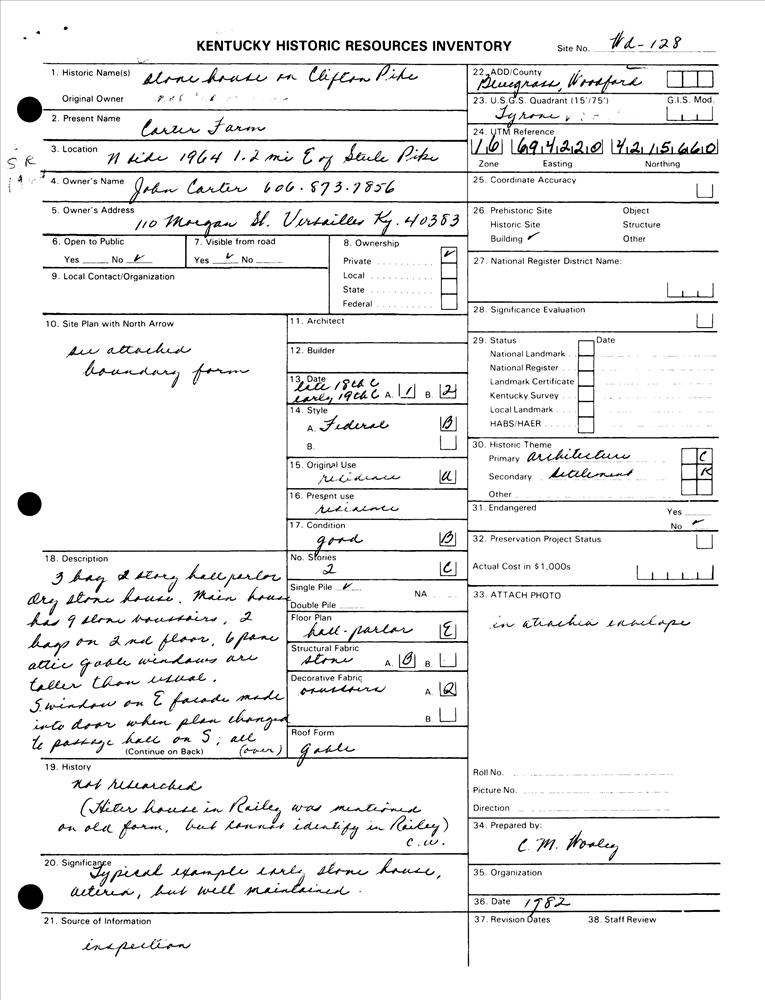 KENTUCKY HISTORIC RESOURCES INVENTORY
Site No. Wd-128
1. Historic Name(s) stone house on Clifton Pike
Original Owner
2. Present Name
Carter Farm
3. Location N side 1964 1.2 mi E of Steele Pike
SR
4. Owner's Name John Carter 606-873-7856
5. Owner's Address
110 Morgan St. Versailles Ky. 40383
6. Open to Public
Yes No ✓
7. Visible from road
Yes ✓ No
8. Ownership
Private ✓
Local
State
Federal
9. Local Contact/Organization
10. Site Plan with North Arrow
see attached
boundary form
11. Architect
12. Builder
13. Date
late 18th C
early 19th C A. 1 B. 2
14. Style
A. Federal B
B.
15. Original Use
residence U
16. Present use
residence
17. Condition
good B
18. Description
3 bay 2 story hall parlor
dry stone house. Main house
has 9 stone voussoirs, 2
bays on 2nd floor, 6 pane
attic gable windows are
taller than usual.
S. window on E facade made
into door when plan changed
to passage hall on S; all
(Continue on Back) (over)
No. Stories
2 C
Single Pile ✓ NA
Double Pile
Floor Plan
hall-parlor E
Structural Fabric
stone A. B B.
Decorative Fabric
voussoirs A. Q
B
Roof Form
gable
19. History
not researched
(Hiter house in Railey was mentioned
on old form, but cannot identify in Railey)
C.W.
20. Significance
Typical example early stone house,
altered, but well maintained.
21. Source of Information
inspection
22. ADD/County
Bluegrass, Woodford
23. U.S.G.S. Quadrant (15'/75') G.I.S. Mod.
Tyrone
24. UTM Reference
16 694220 4215660
Zone Easting Northing
25. Coordinate Accuracy
26. Prehistoric Site Object
Historic Site Structure
Building ✓ Other
27. National Register District Name:
28. Significance Evaluation
29. Status Date
National Landmark
National Register
Landmark Certificate
Kentucky Survey
Local Landmark
HABS/HAER
30. Historic Theme
Primary architecture C
Secondary settlement R
Other
31. Endangered Yes
No ✓
32. Preservation Project Status
Actual Cost in $1,000s
33. ATTACH PHOTO
in attached envelope
Roll No.
Picture No.
Direction
34. Prepared by:
C. M. Wooley
35. Organization
36. Date 1982
37. Revision Dates 38. Staff Review